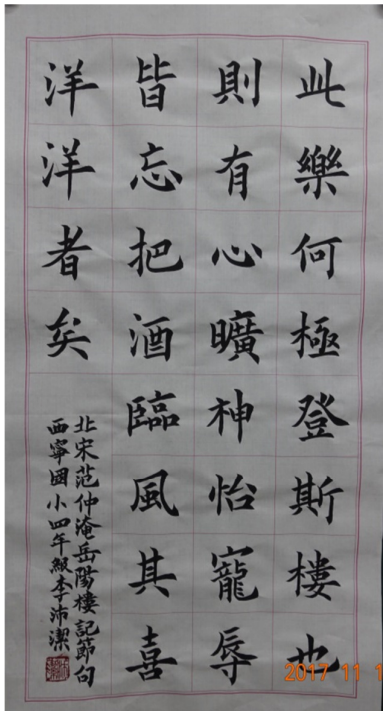 此樂何極登斯樓也
則有心曠神怡寵辱
皆忘把酒臨風其喜
洋洋者矣
北宋范仲淹岳陽樓記節句
西寧国小四年級李沛潔
2017 11 1